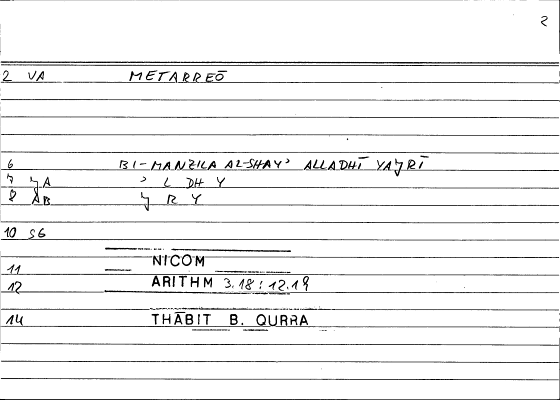 2
2 VA METARREŌ
6 BI-MANZILA AL-SHAYʾ ALLADHĪ YAǦRĪ
7 ǦA ʾ L DH Y
8 AB Ǧ R Y
10 SG
11 NICOM
12 ARITHM 3.18 : 12.19
14 THĀBIT B. QURRA